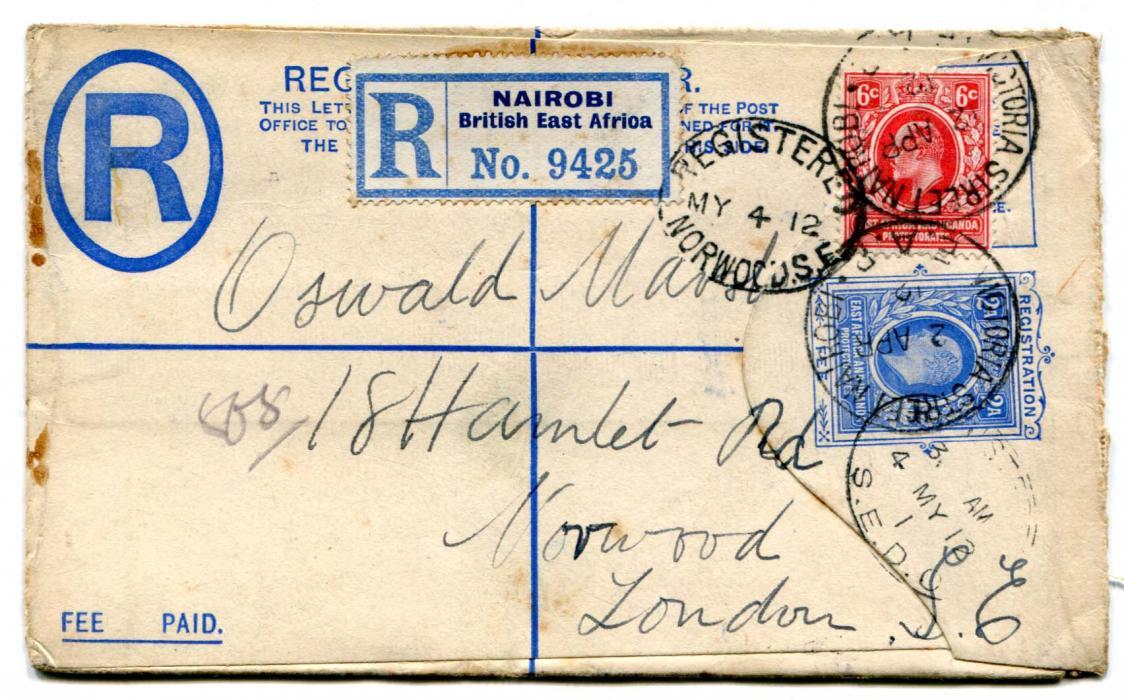 R
REG R.
THIS LET F THE POST
OFFICE TO NED FOR IT.
THE HIS SIDE.
R
NAIROBI
British East Africa
No. 9425
REGISTERED
MY 4 12
NORWOOD.S.E.
VICTORIA STREET NAIROBI
APR
12
6c 6c
EAST AFRICA AND UGANDA
PROTECTORATES
Oswald
VICTORIA STREET NAIROBI
2 APR
12
2A 2A
EAST AFRICA AND UGANDA
PROTECTORATES
REGISTRATION
FEE
18 Hamlet Rd
Norwood
London S.E
AM
4 MY 12
S.E.D.O
FEE PAID.